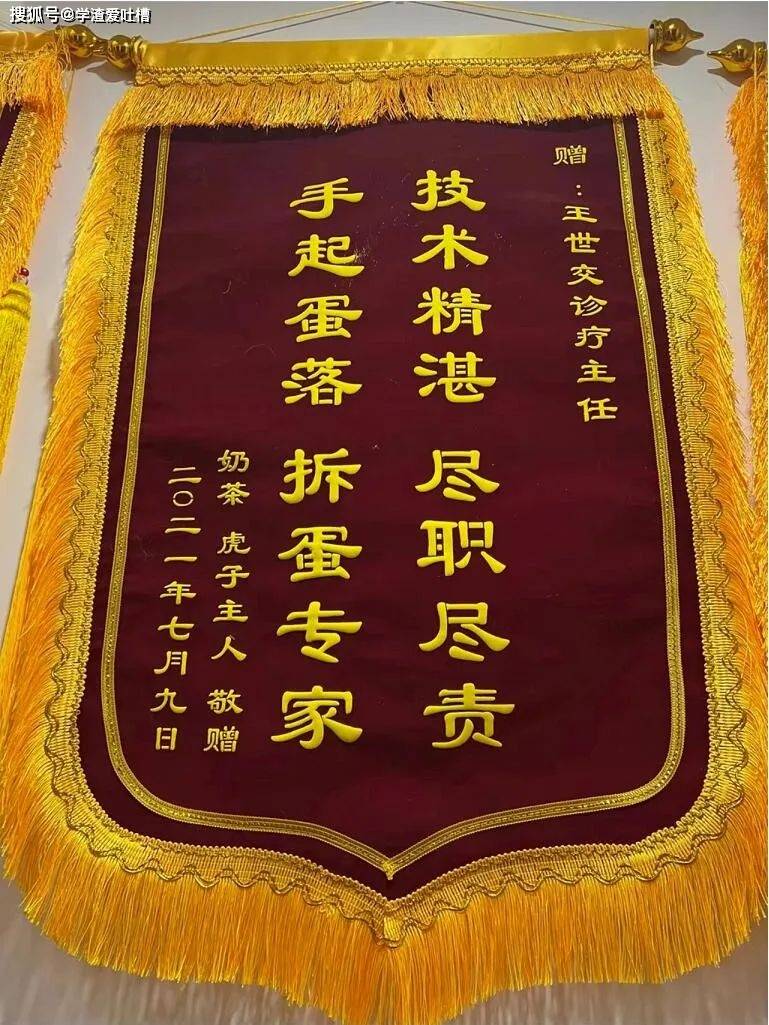 搜狐号@学渣爱吐槽
赠：王世交诊疗主任
技术精湛 尽职尽责
手起蛋落 拆蛋专家
奶茶 虎子主人 敬赠
二〇二一年七月九日